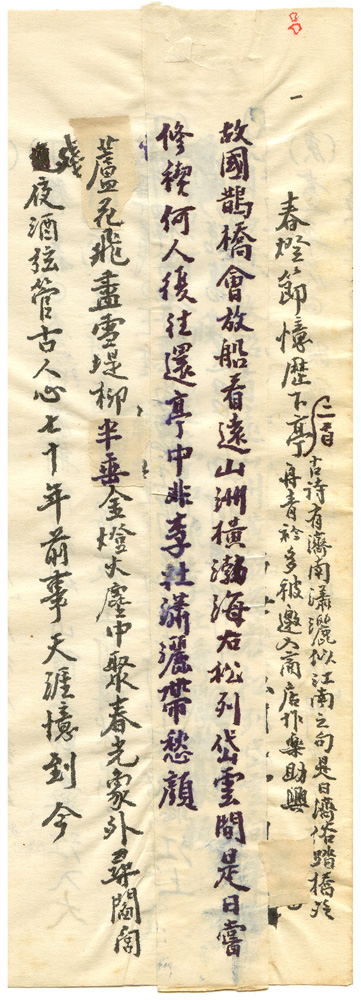 一
春燈節憶歷下亭 二首
古詩有濟南瀟灑似江南之句是日濟俗踏橋
再青衿多被邀入商店作樂助興
故國鵲橋會放船看遠山洲橫渤海右松列岱雲間是日嘗
修禊何人復往還亭中非李杜瀟灑帶愁顏
蘆花飛盡雪堤柳半垂金燈火塵中聚春光象外尋闔閭
殘夜酒弦管古人心七十年前事天涯憶到今